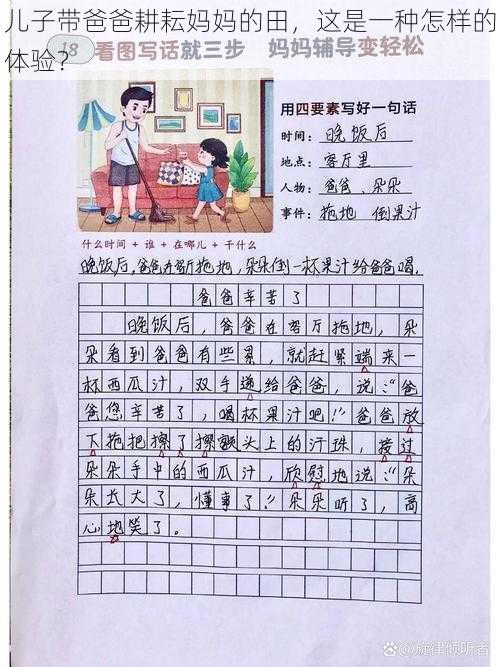 儿子带爸爸耕耘妈妈的田，这是一种怎样的
体验？
18 看图写话就三步 妈妈辅导变轻松
用四要素写好一句话
时间：晚饭后
地点：客厅里
人物：爸爸、朵朵
事件：拖地 倒果汁
什么时间 + 谁 + 在哪儿 + 干什么
晚饭后，爸爸在客厅拖地，朵朵倒一杯果汁给爸爸喝。
爸爸辛苦了
晚饭后，爸爸在客厅拖地，朵
朵看到爸爸有些累，就赶紧端来一
杯西瓜汁，双手递给爸爸，说：“爸
爸您辛苦了，喝杯果汁吧！”爸爸放
下拖把擦了擦额头上的汗珠，接过
朵朵手中的西瓜汁，欣慰地说：“朵
朵长大了，懂事了！”朵朵听了，高
心地笑了。
@旋律倾听者